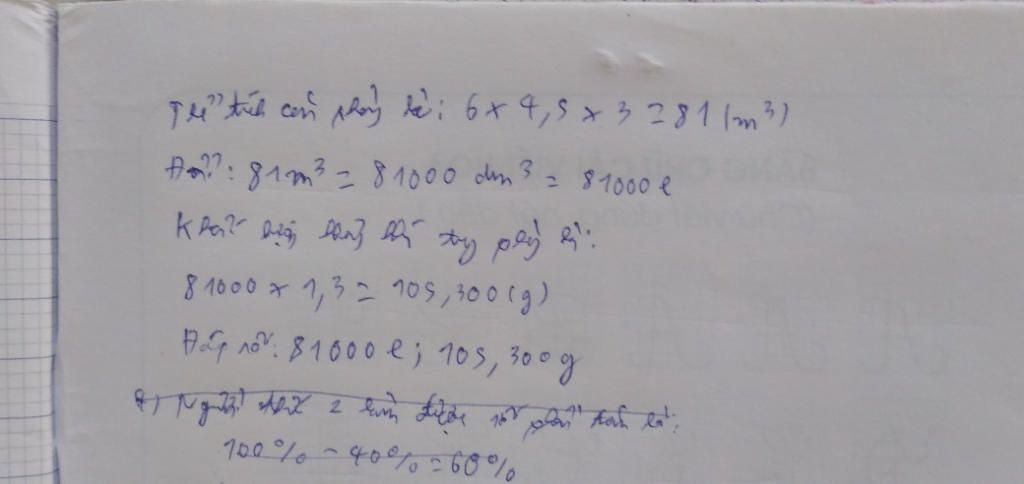 Thể tích căn phòng là: 6 x 4,5 x 3 = 81 (m³)
Đổi: 81m³ = 81000 dm³ = 81000 l
Khối lượng không khí trong phòng là:
81000 x 1,3 = 105,300 (g)
Đáp số: 81000 l; 105,300g
Người thứ 2 làm được số phần trăm là:
100% - 40% = 60%